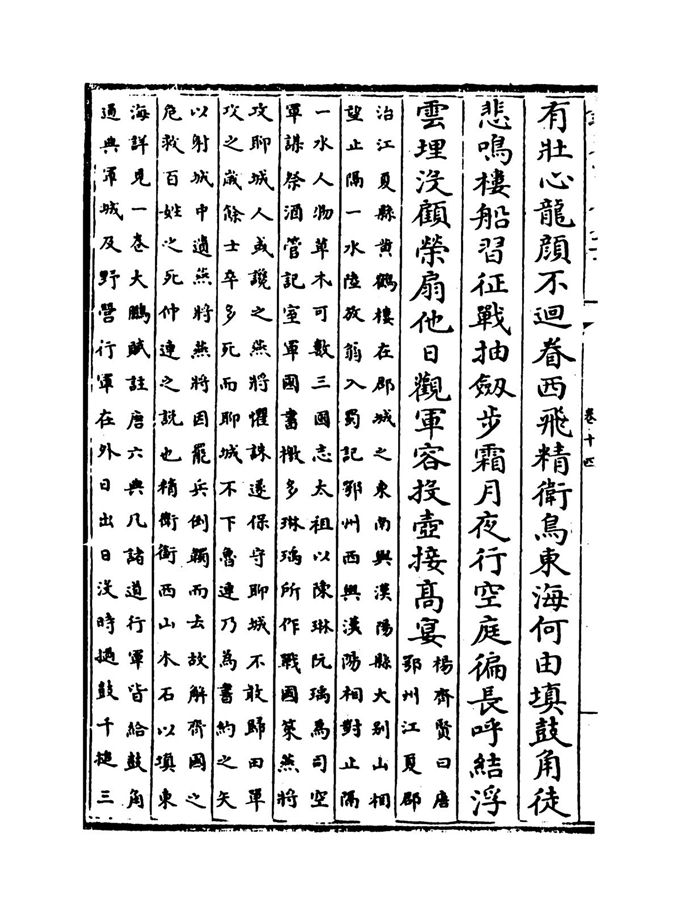 有壯心龍顔不迴眷西飛精衛鳥東海何由填鼓角徒
悲鳴樓船習征戰抽劔步霜月夜行空庭徧長呼結浮
雲埋沒顧榮扇他日觀軍容投壺接髙宴
楊齊賢曰唐
鄂州江夏郡
治江夏縣黄鶴樓在郡城之東南與漢陽縣大别山相
望止隔一水陸放翁入蜀記鄂州西與漢陽相對止隔
一水人物草木可數三國志太祖以陳琳阮瑀為司空
軍謀祭酒管記室軍國書檄多琳瑀所作戰國策燕將
攻聊城人或讒之燕將懼誅遂保守聊城不敢歸田單
攻之歲餘士卒多死而聊城不下魯連乃為書約之矢
以射城中遺燕將燕將因罷兵倒韣而去故解齊國之
危救百姓之死仲連之說也精衛銜西山木石以填東
海詳見一卷大鵬賦註唐六典凡諸道行軍皆給鼓角
通典軍城及野營行軍在外日出日沒時撾鼓千槌三
卷十四